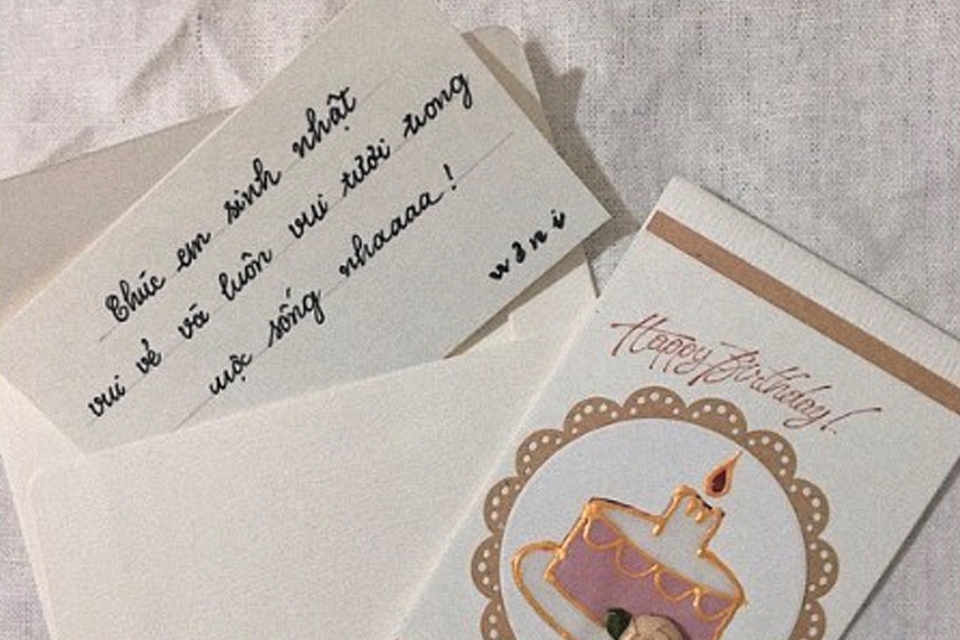 Chúc em sinh nhật
vui vẻ và luôn vui tươi trong
cuộc sống nhaaaa!
w 3 n i
Happy Birthday!